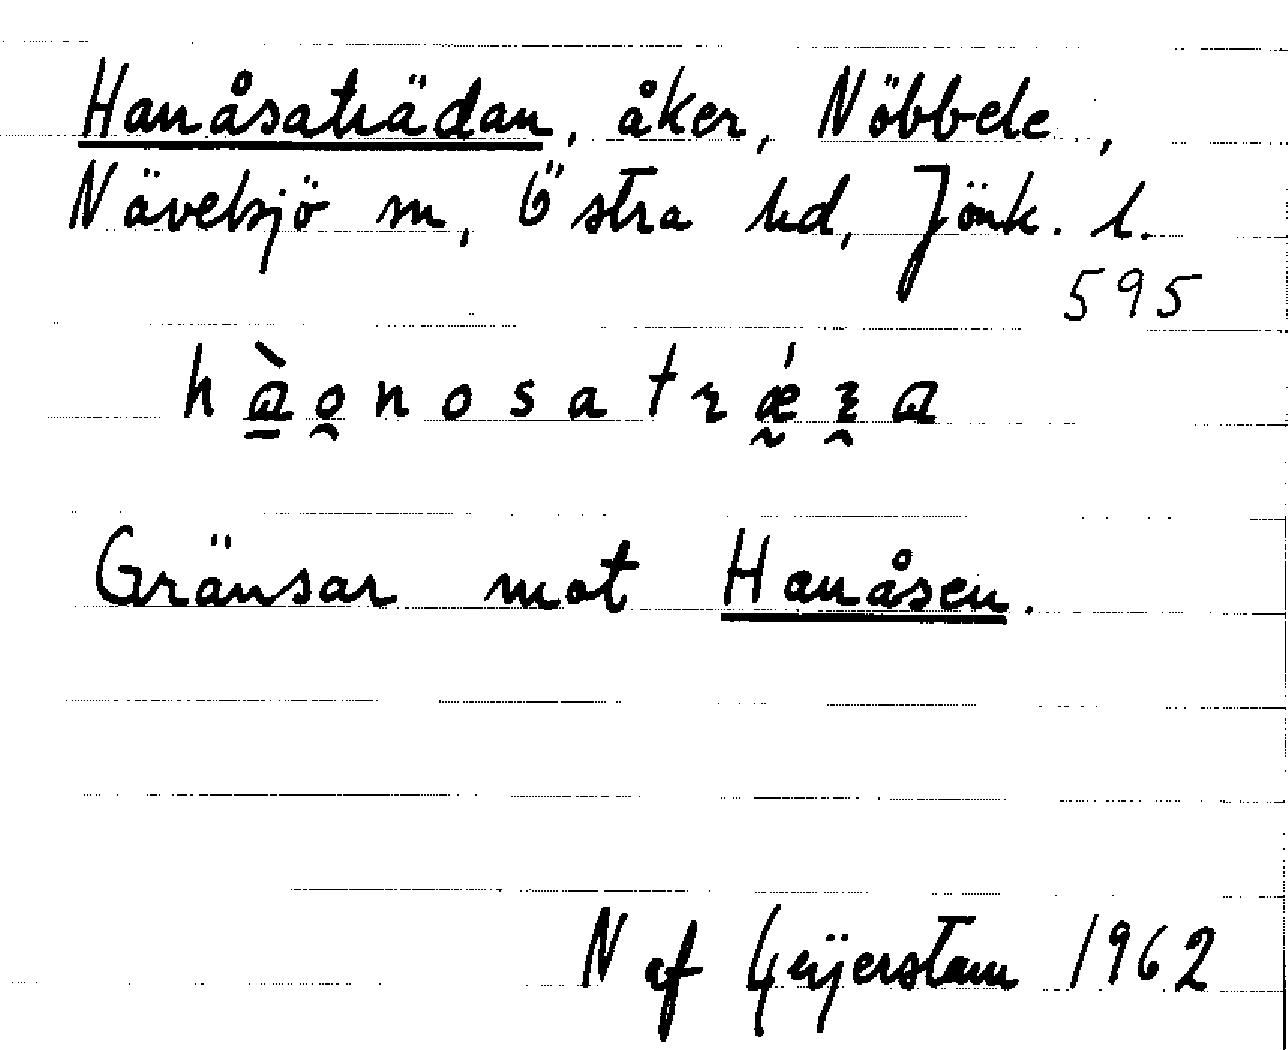 Hanåsaträdan, åker, Nöbbele,
Nävelsjö sn, Östra hd, Jönk. l.
595
hàonosatrǽra
Gränsar mot Hanåsen.
N af Geijerstam 1962